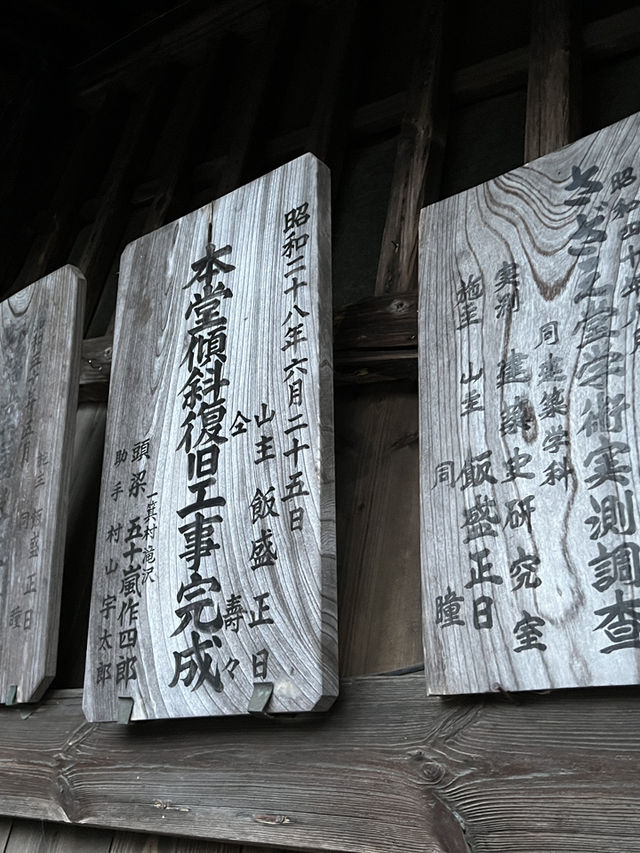 昭和四十
さざえ堂学術実測調査
同建築学科
実測 建築史研究室
施主 山主 飯盛正日
同 瞳
昭和二十八年六月二十五日
山主 飯盛正日
仝 壽々
本堂傾斜復旧工事完成
一箕村滝沢
頭梁 五十嵐作四郎
助手 村山宇太郎
飯盛正日
同 瞳